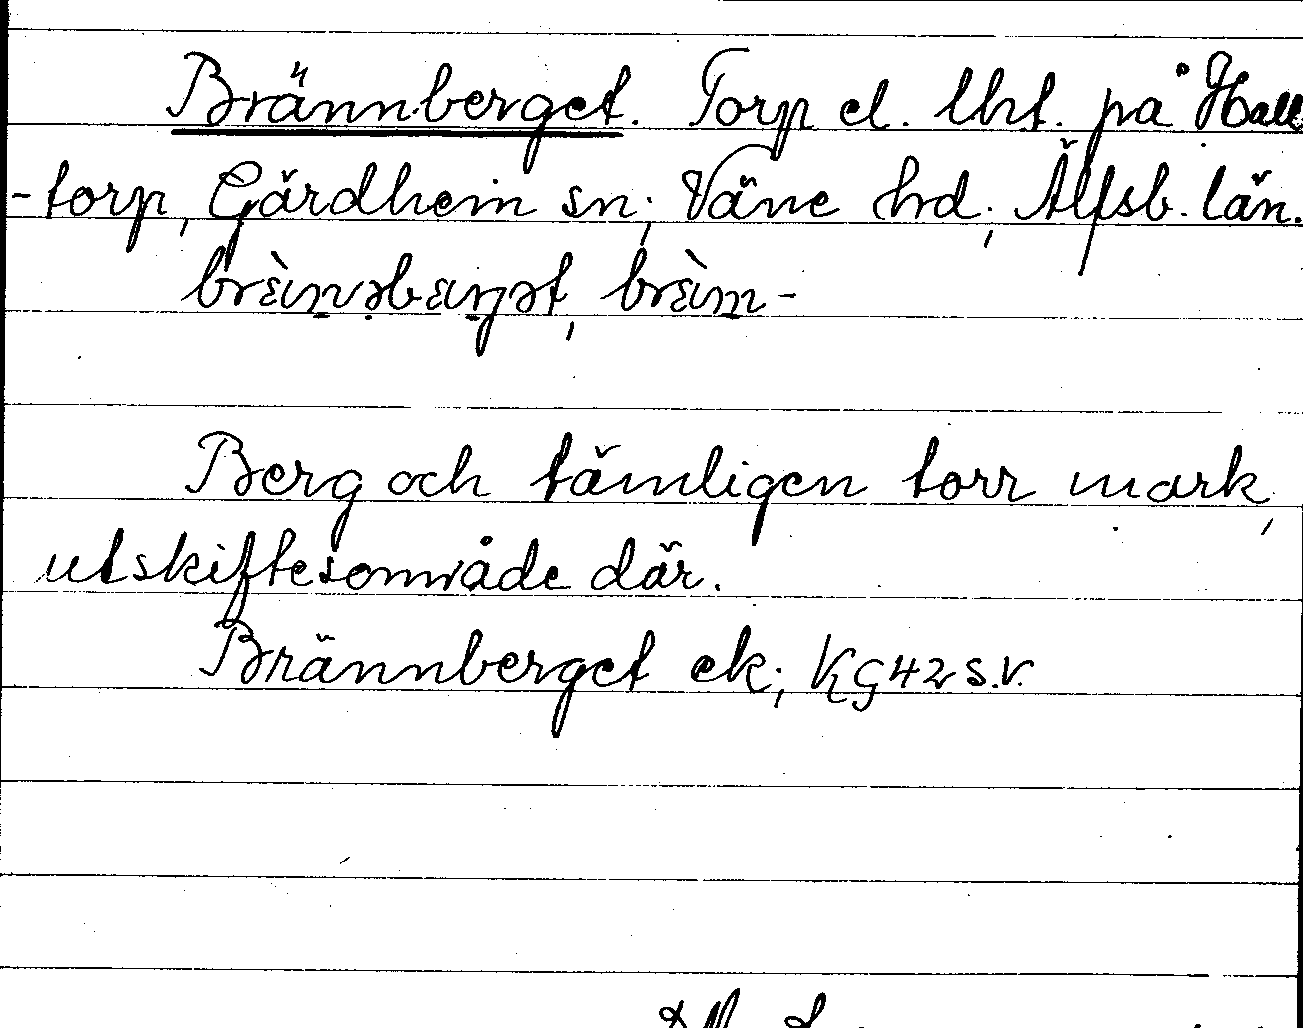 Brännberget. Torp el. lht. på Hall
-torp, Gärdhem sn; Väne hd; Älfsb. län.
Berg och tämligen torr mark,
utskiftesområde där.
Brännberget ek; KG42 S.V.